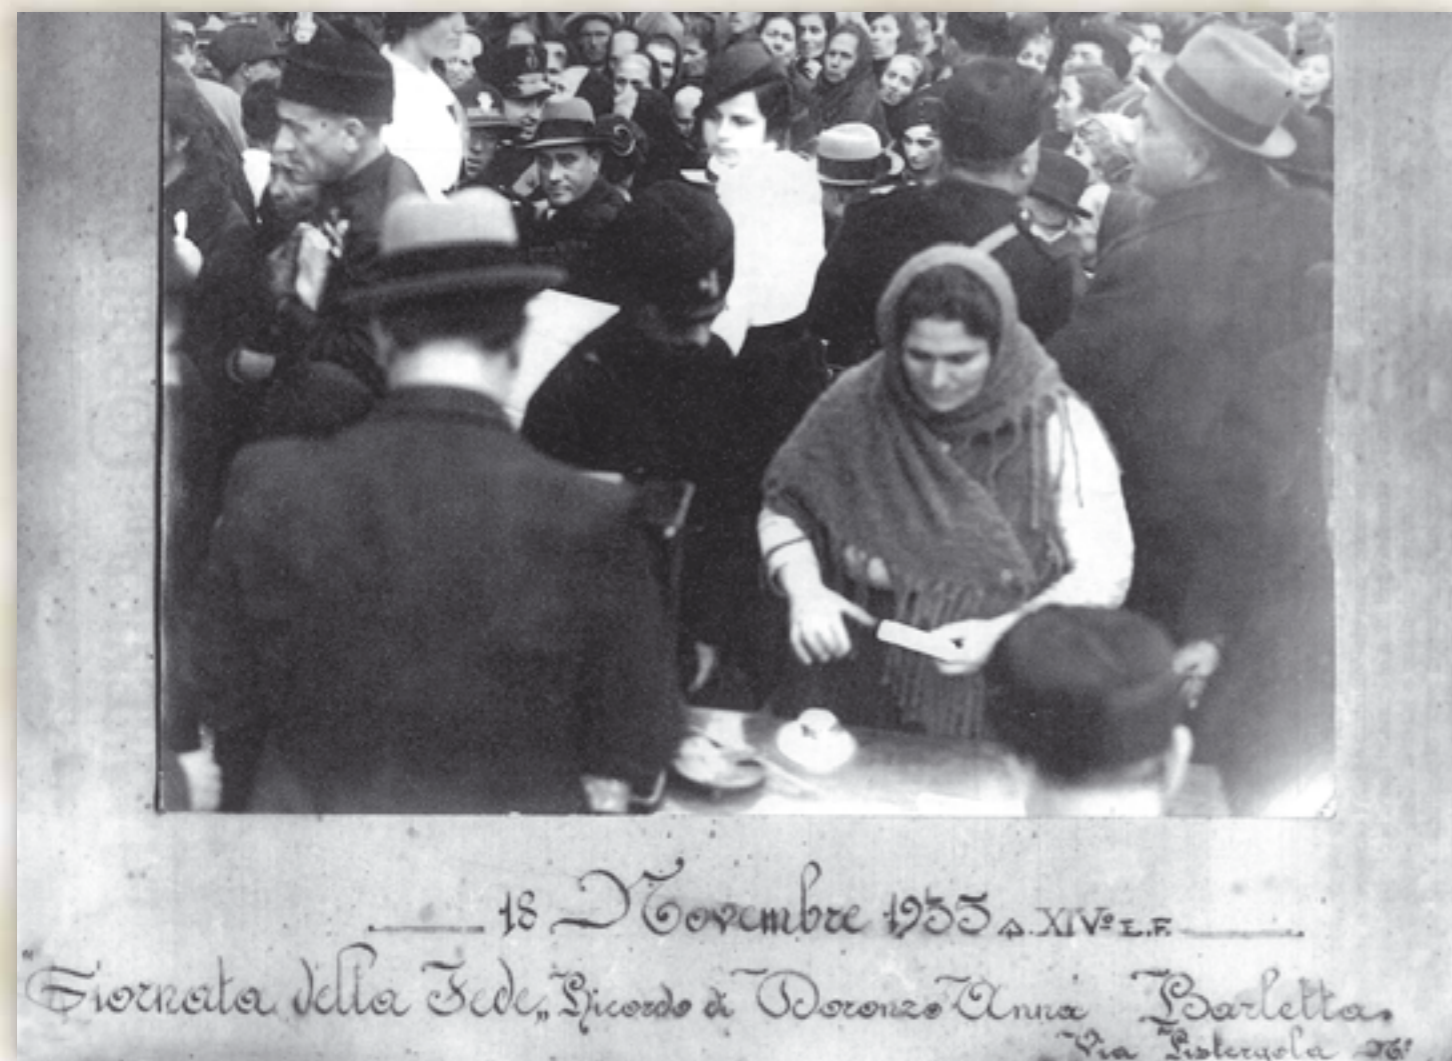 18 Novembre 1935 A. XIVº E.F.
"Giornata della Fede„ Ricordo di Doronzo Anna Barletta.
Via Pistergola Nº